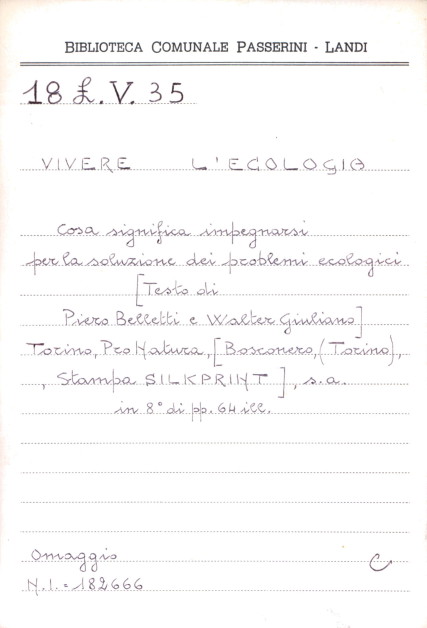 BIBLIOTECA COMUNALE PASSERINI - LANDI
18 £.V. 35
VIVERE L'ECOLOGIA
Cosa significa impegnarsi
per la soluzione dei problemi ecologici
[Testo di
Piero Belletti e Walter Giuliano]
Torino, Pro Natura, [Bosconero, (Torino),
, Stampa SILKPRINT], s.a.
in 8° di pp. 64 ill.
Omaggio C
N.I. = 182666